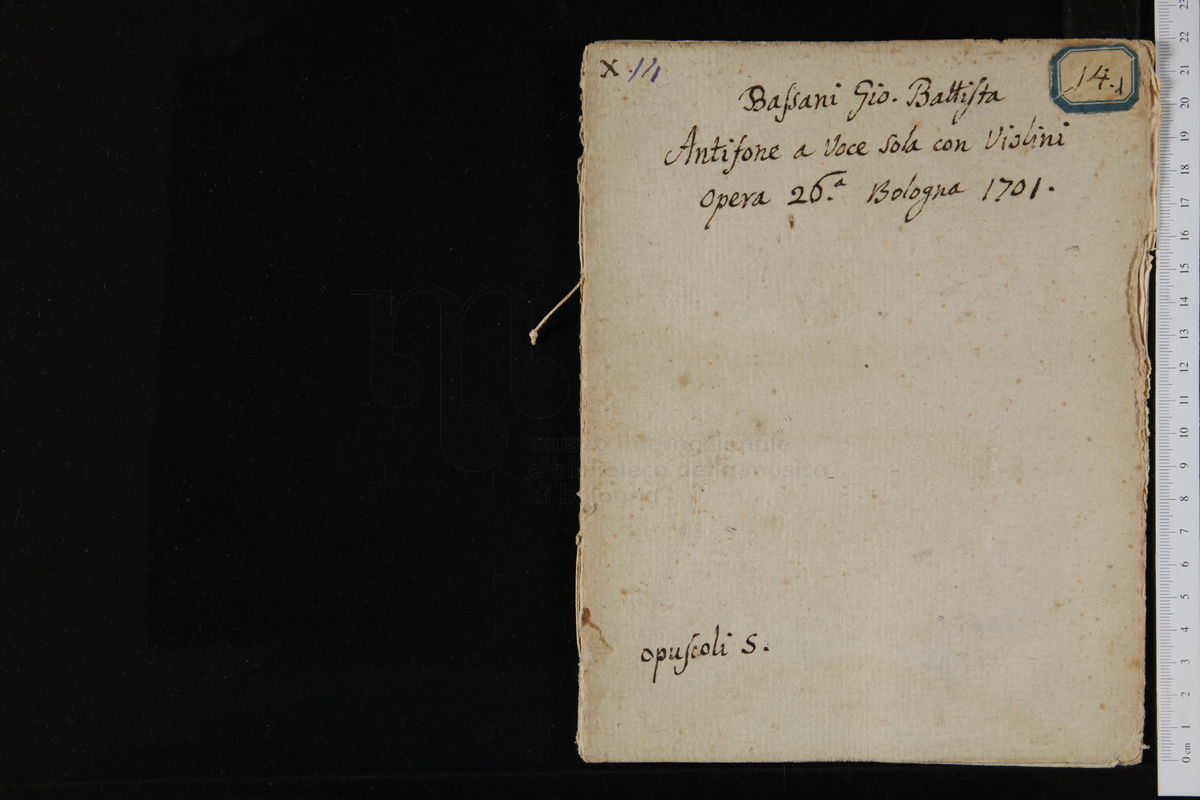 X. 14
14.1
Baſsani Gio. Battiſta
Antifone a Voce sola con Violini
opera 26.ª Bologna 1701.
opuſcoli S.
museo internazionale
e biblioteca della musica
di bologna
23
22
21
20
19
18
17
16
15
14
13
12
11
10
9
8
7
6
5
4
3
2
1
0 cm